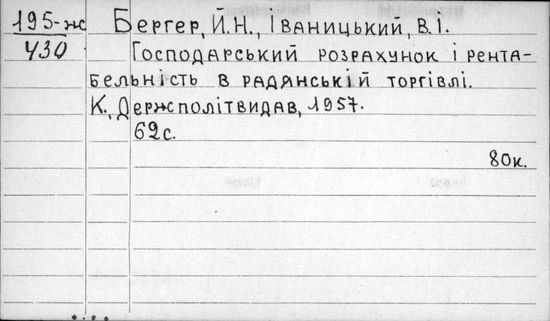 195-ж Бергер, Й.Н., Іваницький, В.І.
430 Господарський розрахунок і рента-
бельність в радянській торгівлі.
К., Держполітвидав, 1957.
62с.
80к.